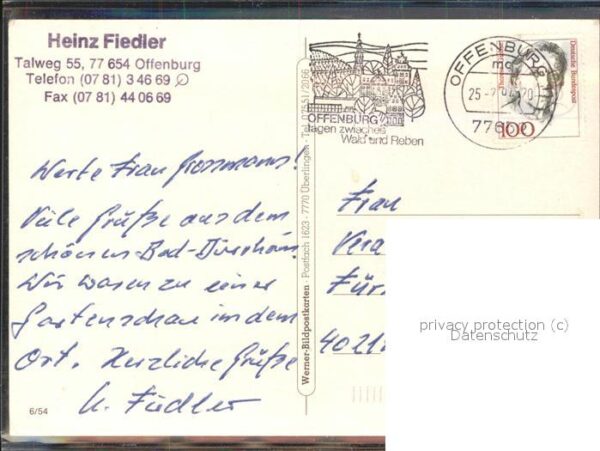 Heinz Fiedler
Talweg 55, 77 654 Offenburg
Telefon (07 81) 3 46 69
Fax (07 81) 44 06 69
Werte Frau Grossmann!
Viele Grüße aus dem
schönen Bad-Dürrheim.
Wir waren zu einer
Gartenschau in dem
Ort. Herzliche Grüße
H. Fiedler
6/54
Werner-Bildpostkarten · Postfach 1623 · 7770 Überlingen · Tel. 07551/2066
OFFENBURG
tagen zwischen
Wald und Reben
OFFENBURG
25
77600
Deutsche Bundespost
100
Frau
Vera
Für
4021
privacy protection (c)
Datenschutz